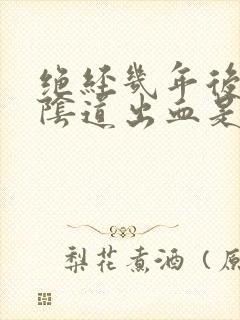 绝经幾年後
陰道出血是
梨花煮酒（原